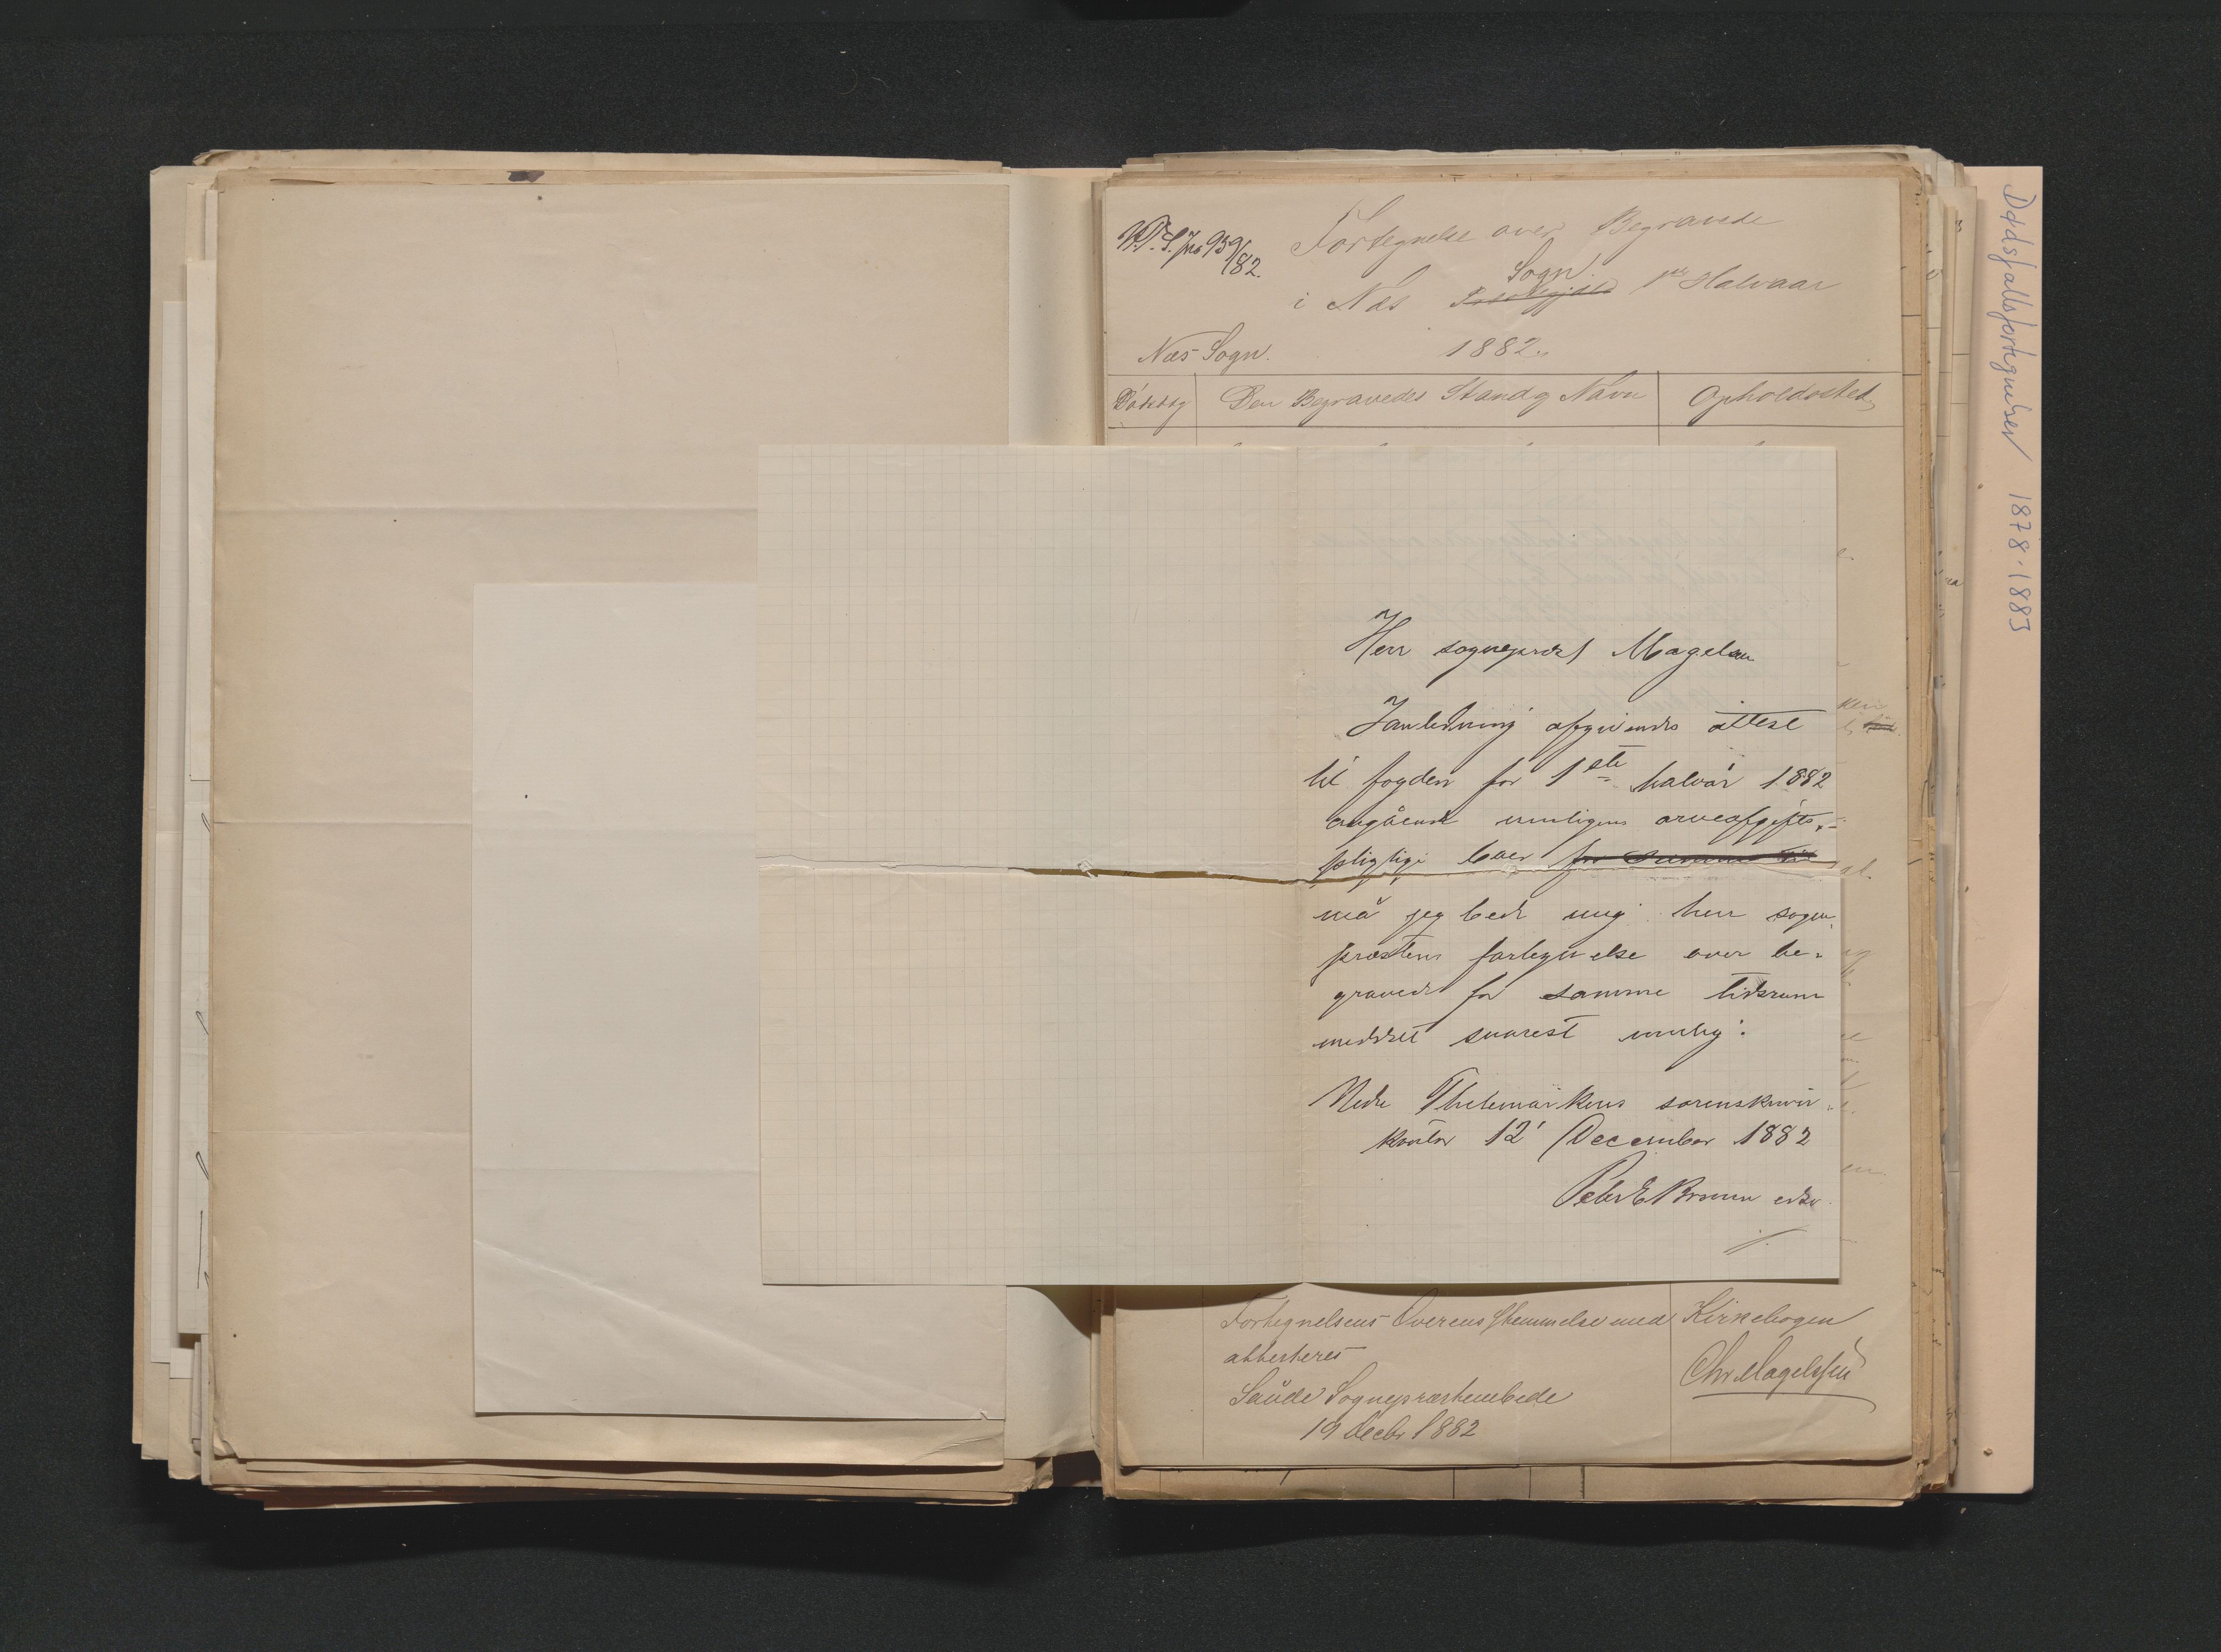 N.T.S. Jno 939/82.
Fortegnelse over Begravede
i Næs Sogn 1ste Halvaar
1882.
Næs Sogn.
Dødsdag Den Begravedes Stand og Navn Opholdssted
Herr sogneprest Magelsen
I anledning afgivendes attest
til fogden for 1ste halvår 1882
angående muligens arveafgifts-
pligtige boer for
må jeg bede mig herr sogne-
præstens fortegnelse over be-
gravede for samme tidsrum
meddelt snarest mulig.
Nedre Thelemarkens sorenskriver
kontor 12' December 1882
Peter E Bruun edsv.
Fortegnelsens Overensstemmelse med Kirkebogen
attesteres
Saude Sognepræstembede
19 Decbr 1882
Chr. Magelssen
Dødsfallsfortegnelser 1878-1883